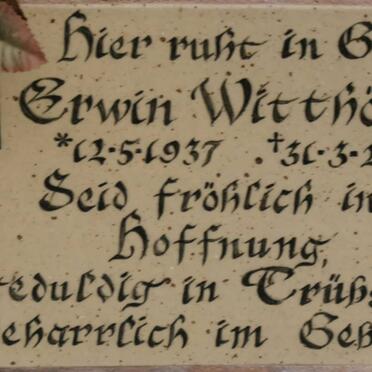 Hier ruht in G
Erwin Witthö
*12·5·1937 ·†31·3·2
Seid fröhlich in
Hoffnung,
eduldig in Trübs
eharrlich im Geb